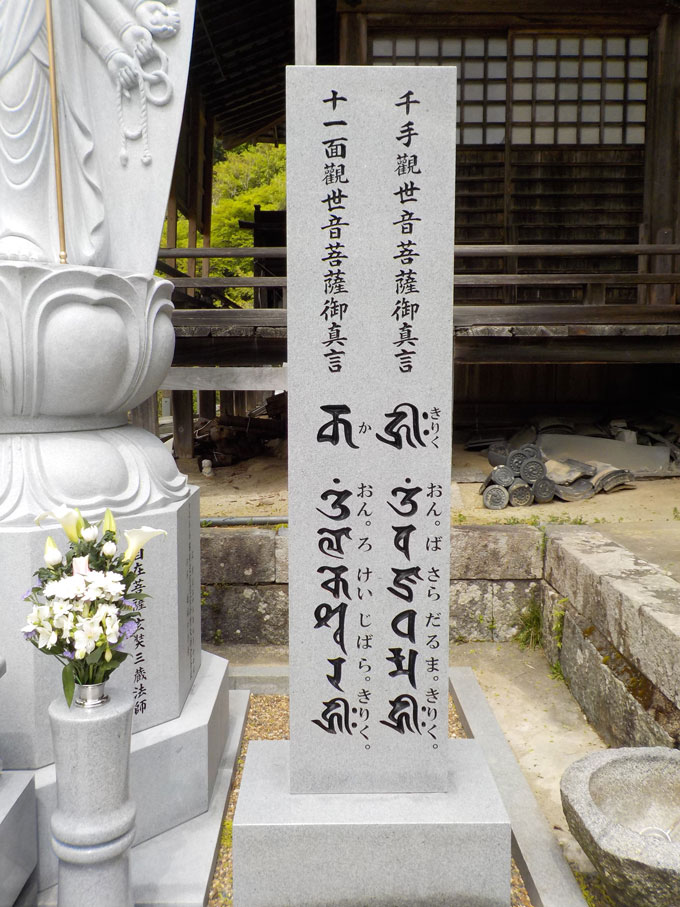 千手觀世音菩薩御真言
きりく
おん。ばさらだるま。きりく。
十一面觀世音菩薩御真言
か
おん。ろけいじばら。きりく。
在菩薩玄奘三蔵法師